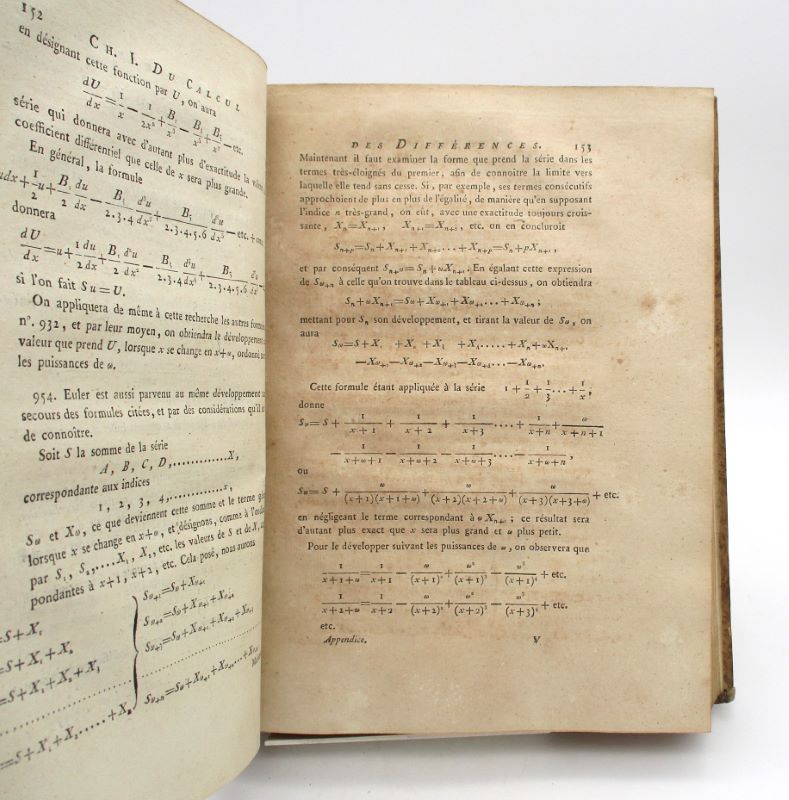 152
CH. I. DU CALCUL
en désignant cette fonction par U, on aura
dU/dx = 1/x − 1/2x² + B₁/x³ − B₃/x⁵ + B₅/x⁷ − etc.
série qui donnera avec d'autant plus d'exactitude la
coefficient différentiel que celle de x sera plus grande.
En général, la formule
udx + 1/2 u + B₁/2 du/dx − B₃/2.3.4 d³u/dx³ + B₅/2.3.4.5.6 d⁵u/dx⁵ − etc. +
donnera
dU/dx = u + 1/2 du/dx + B₁/2 d²u/dx² − B₃/2.3.4 d⁴u/dx⁴ + B₅/2.3.4.5.6
si l'on fait Su = U.
On appliquera de même à cette recherche les autres
n°. 932, et par leur moyen, on obtiendra le
valeur que prend U, lorsque x se change en x+ω,
les puissances de ω.
954. Euler est aussi parvenu au même développement
secours des formules citées, et par des considérations qu'il
de connoître.
Soit S la somme de la série
A, B, C, D,.............X,
correspondante aux indices
1, 2, 3, 4,............x,
Sω et Xω, ce que deviennent cette somme et le terme
lorsque x se change en x+ω, et désignons, comme à
par S₁, S₂,....X₁, X₂, etc. les valeurs de S et de X,
pondantes à x+1, x+2, etc. Cela posé, nous aurons
=S+X₁
=S+X₁+X₂
=S+X₁+X₂+X₃
=S+X₁+X₂.....+Xₙ
Sω₊₁=Sω+Xω₊₁
Sω₊₂=Sω+Xω₊₁+Xω₊₂
Sω₊₃=Sω+Xω₊₁+Xω₊₂+Xω₊₃
Sω₊ₙ=Sω+Xω₊₁+Xω₊₂...+Xω₊ₙ
DES DIFFÉRENCES. 153
Maintenant il faut examiner la forme que prend la série dans les
termes très-éloignés du premier, afin de connoitre la limite vers
laquelle elle tend sans cesse. Si, par exemple, ses termes consécutifs
approchoient de plus en plus de l'égalité, de manière qu'en supposant
l'indice n très-grand, on eût, avec une exactitude toujours crois-
sante, Xₙ=Xₙ₊₁, Xₙ₊₁=Xₙ₊₂, etc. on en concluroit
Sₙ₊ₚ=Sₙ+Xₙ₊₁+Xₙ₊₂...+Xₙ₊ₚ=Sₙ+pXₙ₊₁,
et par conséquent Sₙ₊ω=Sₙ+ωXₙ₊₁. En égalant cette expression
de Sω₊ₙ à celle qu'on trouve dans le tableau ci-dessus, on obtiendra
Sₙ+ωXₙ₊₁=Sω+Xω₊₁+Xω₊₂....+Xω₊ₙ;
mettant pour Sₙ son développement, et tirant la valeur de Sω, on
aura
Sω=S+X₁ +X₂ +X₃ +X₄.....+Xₙ+ωXₙ₊₁
−Xω₊₁−Xω₊₂−Xω₊₃−Xω₊₄...−Xω₊ₙ.
Cette formule étant appliquée à la série 1 + 1/2 + 1/3 ...+ 1/x,
donne
Sω = S + 1/(x+1) + 1/(x+2) + 1/(x+3) ....+ 1/(x+n) + ω/(x+n+1)
− 1/(x+ω+1) − 1/(x+ω+2) − 1/(x+ω+3) ....− 1/(x+ω+n),
ou
Sω = S + ω/(x+1)(x+1+ω) + ω/(x+2)(x+2+ω) + ω/(x+3)(x+3+ω) + etc.
en négligeant le terme correspondant à ωXₙ₊₁; ce résultat sera
d'autant plus exact que x sera plus grand et ω plus petit.
Pour le développer suivant les puissances de ω, on observera que
1/(x+1+ω) = 1/(x+1) − ω/(x+1)² + ω²/(x+1)³ − ω³/(x+1)⁴ + etc.
1/(x+2+ω) = 1/(x+2) − ω/(x+2)² + ω²/(x+2)³ − ω³/(x+3)⁴ + etc.
etc.
Appendice. V